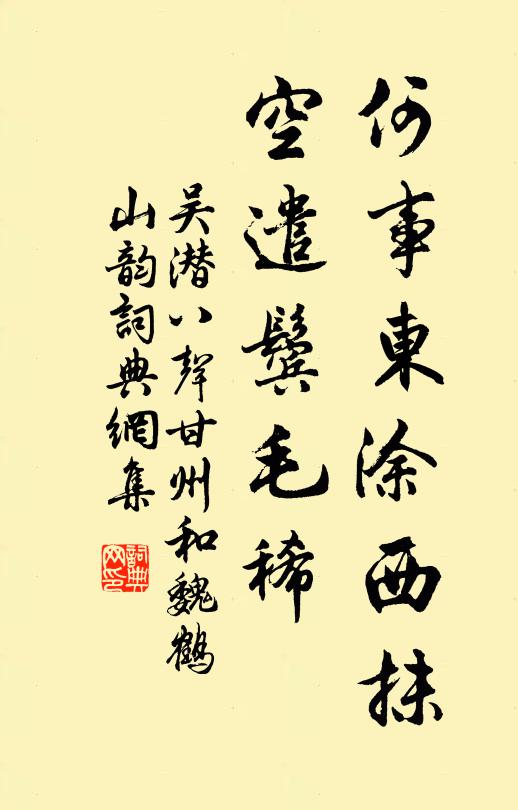 何事東涂西抹
空遣鬓毛稀
吴潜八聲甘州和魏鶴
山韵詞典網集
詞典網印